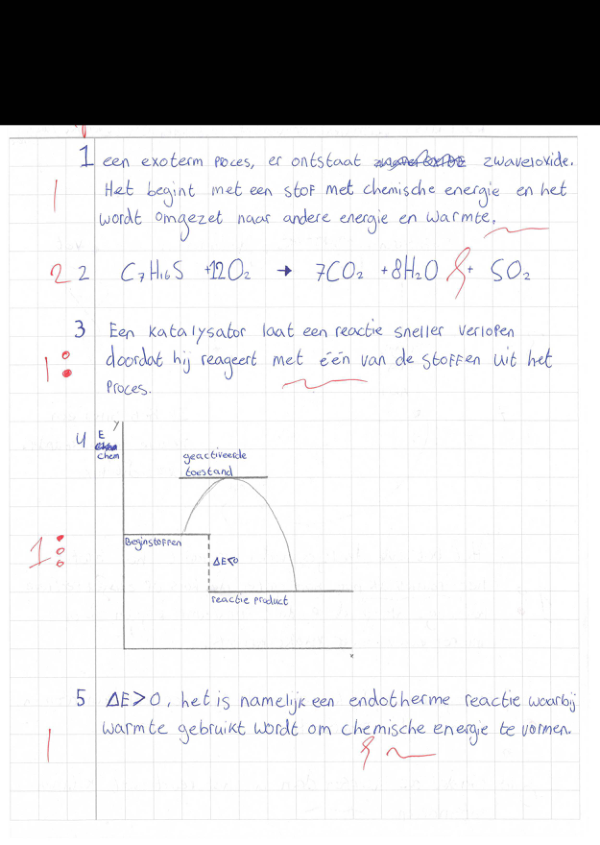 1 een exoterm poces, er ontstaat zwaveloxide.
Het begint met een stof met chemische energie en het
1
wordt omgezet naar andere energie en warmte.
2 2 C7H16S +12O2 → 7CO2 +8H2O + SO2
3 Een katalysator laat een reactie sneller verlopen
1 doordat hij reageert met één van de stoffen uit het
proces.
4 E y
chem
geactiveerde
toestand
Beginstoffen
1
ΔE<0
reactie product
5 ΔE>0, het is namelijk een endotherme reactie waarbij
1 warmte gebruikt wordt om chemische energie te vormen.